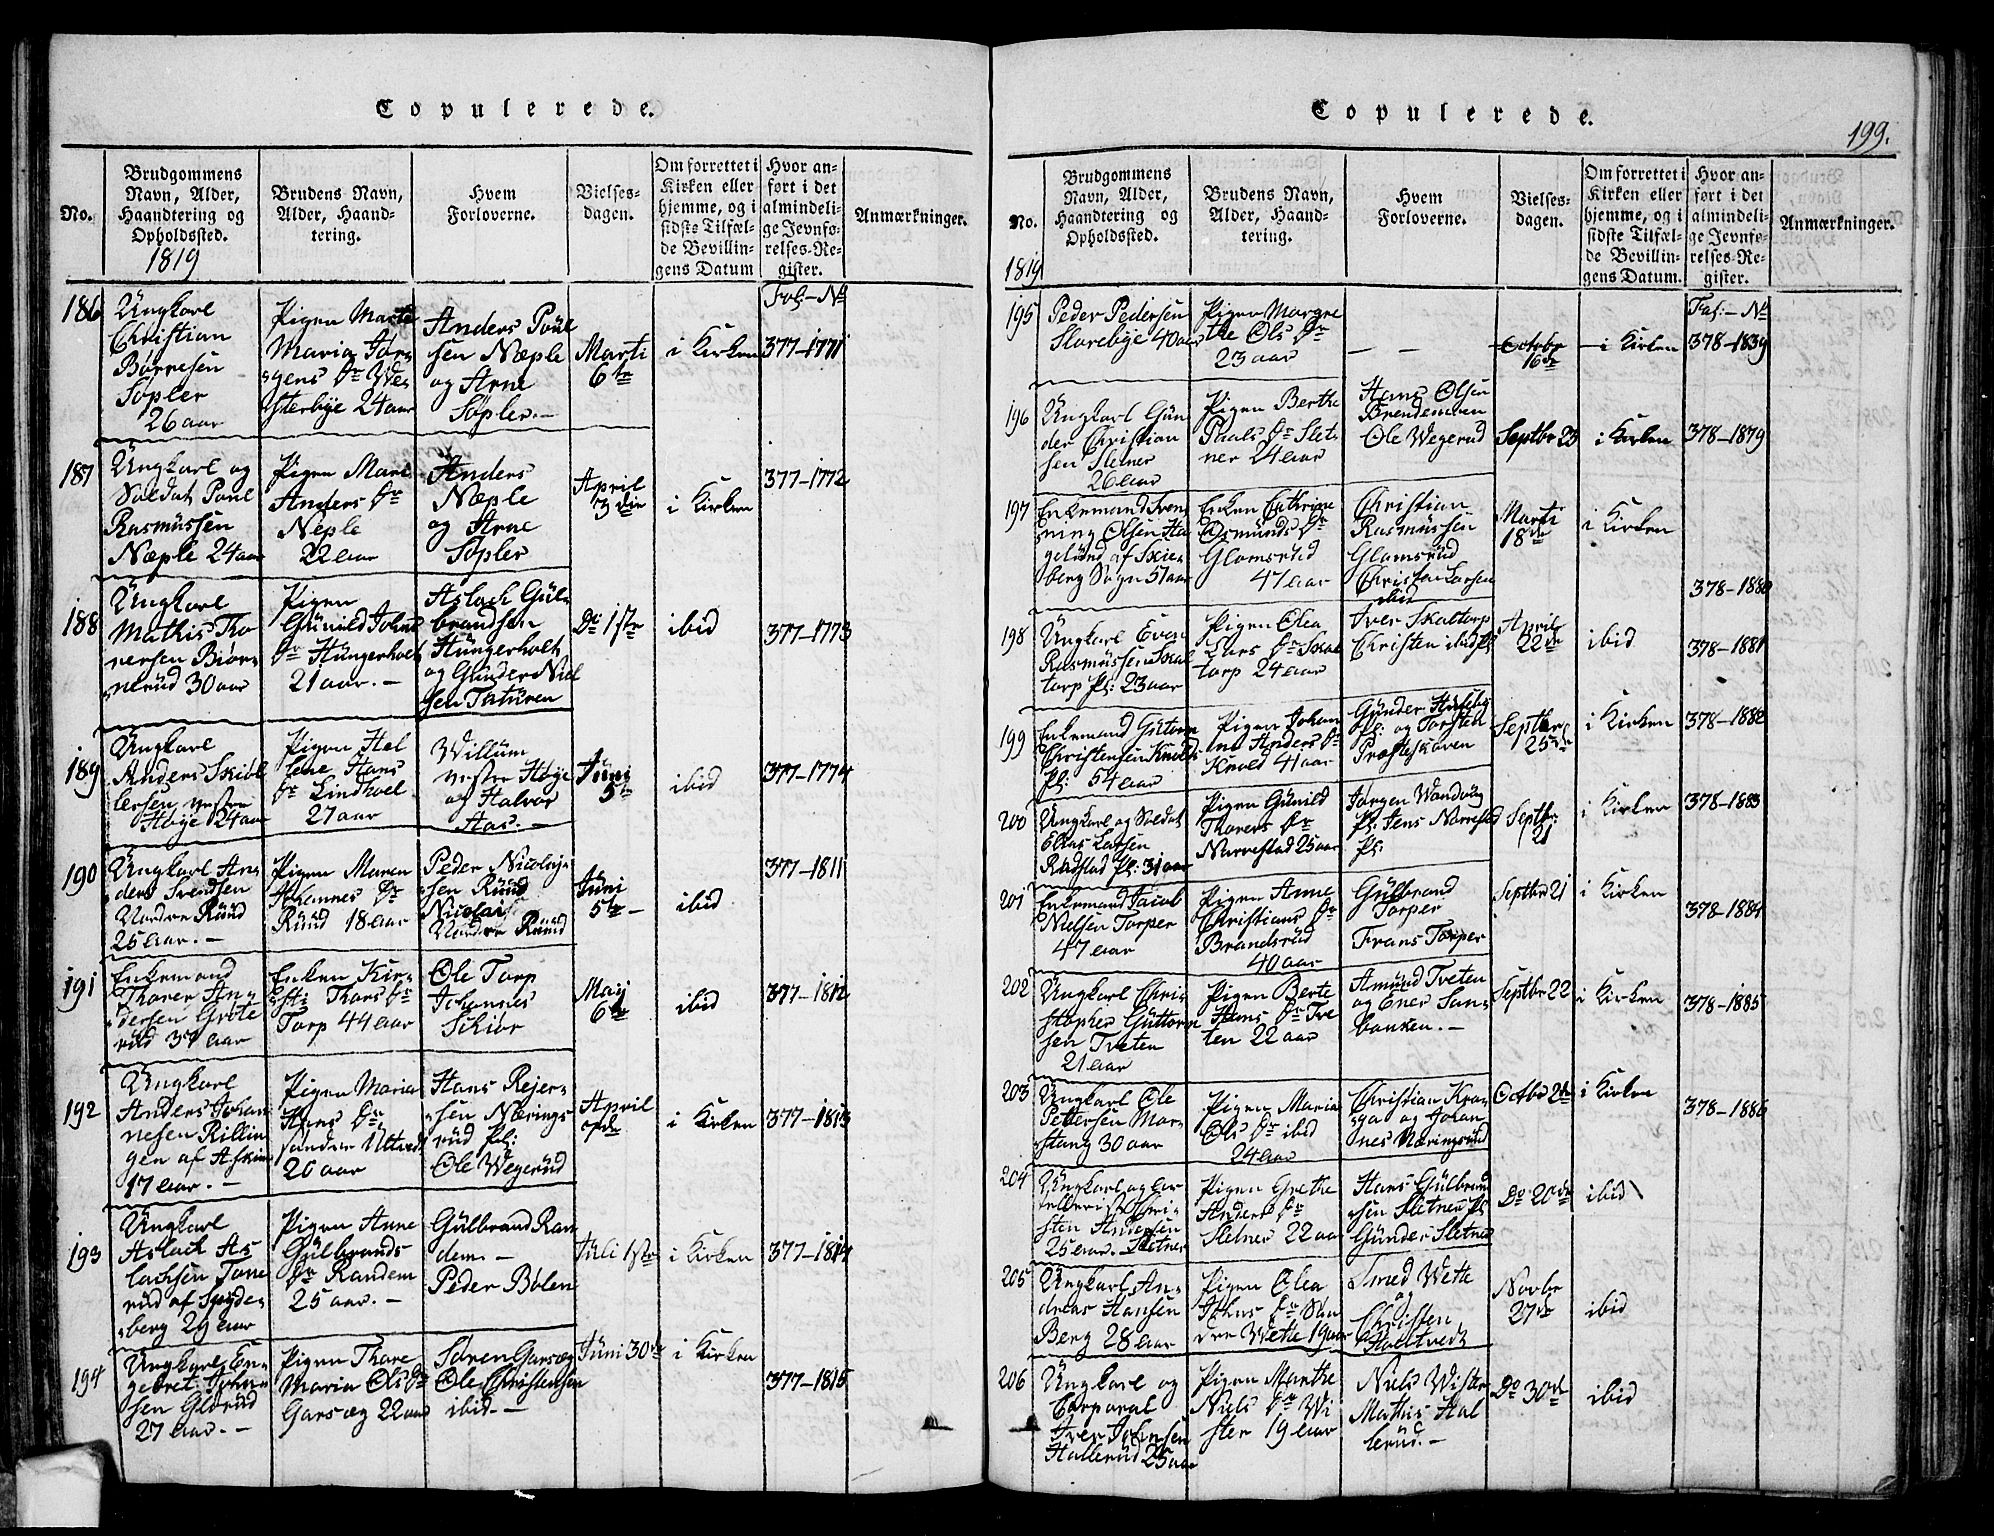 Copulerede.
No.
Brudgommens Navn, Alder, Haandtering og Opholdssted.
1819
Brudens Navn, Alder, Haandtering.
Hvem Forloverne.
Vielsesdagen.
Om forrettet i Kirken eller hjemme, og i sidste Tilfælde Bevillingens Datum
Hvor anført i det almindelige Jevnførelses-Register.
Anmærkninger.
Fol: – No
186
Ungkarl
Christian
Børresen
Søpler
26 aar
Pigen Marte
Maria Jør-
gens Dr We-
sterbye 24 aar
Anders Poul
sen Næple
og Arne
Søpler. –
Marti
6te
i Kirken
377–1771
187
Ungkarl og
Soldat Poul
Rasmussen
Næple 24 aar
Pigen Mari
Anders Dr
Neple
22 aar
Anders
Næple
og Arne
Søpler
April
3die
i Kirken
377–1772
188
Ungkarl
Mathis Tho
nersen Biør-
nerud 30 aar
Pigen
Gunild Johns
Dr Hungerholt
21 aar. –
Aslach Gul-
brandsen
Hungerholt
og Gunder Niel
sen Taturen
Do 1ste
ibid
377–1773
189
Ungkarl
Anders
lersen vestre
Høye 24 aar
Pigen Hel
lene Hans
Dr Lindhoel
27 aar
Willum
vestre Høye
og Halvor
Aas. –
Juni
5te
ibid
377–1774
190
Ungkarl An-
ders Svendsen
Nordre Ruud
25 aar. –
Pigen Maren
Johannes Dr
Ruud 18 aar
Peder Nicolaj-
sen Ruud
Nicolai
Nordre Ruud
Juni
5te –
ibid
377–1811
191
Enkemand
Thorer An-
dersen Grote
rud 37 aar
Enken Kir-
sti Thors Dr
Torp 44 aar
Ole Torp
Johannes
Schiør
Maij
6te
ibid
377–1812
192
Ungkarl
Anders Johan
nesen Rillin
gen af Askim
17 aar. –
Pigen Maria
Hans Dr
søndre
20 aar
Hans Rejer-
sen Nærings
rud Pl:
Ole Wegerud
April
7de
i Kirken
377–1813
193
Ungkarl
Aslach As
lachsen Tone
rud af Spyde-
berg 29 aar
Pigen Anne
Gulbrands
Dr Randem
25 aar. –
Gulbrand Ran
dem. –
Peder Bølen
Juli 1ste
i Kirken
377–1814
194
Ungkarl En-
gebret John-
sen Glorud
27 aar. –
Pigen Thore
Maria Ols Dr
Garsæg 22 aar
Søren Garsæg
Ole Christensen
ibid. –
Juni 30te
i Kirken
377–1815
Copulerede.
199.
No.
1819
Brudgommens Navn, Alder, Haandtering og Opholdssted.
Brudens Navn, Alder, Haandtering.
Hvem Forloverne.
Vielsesdagen.
Om forrettet i Kirken eller hjemme, og i sidste Tilfælde Bevillingens Datum.
Hvor anført i det almindelige Jevnførelses-Register.
Anmærkninger.
Fol: – No
195
Peder Pedersen
Slorebye 40 aar
Pigen Margre
the Ols Dr
23 aar
– –
Octobr
16de
i Kirken
378–1839
196
Ungkarl Gun
der Christian
sen Sletner
26 aar
Pigen Berthe
Pauls Dr Slet-
ner 24 aar
Hans Olsen
Brendemoen
Ole Wegerud
Septbr 23
i Kirken
378–1879
197
Enkemand Sven
ning Olsen Ha
gelund af Skie-
berg Sogn 51 aar
Enken Cathrine
Osmunds Dr
Glomsrud
47 aar
Christian
Rasmussen
Glomsrud
Christen Larsen
ibid
Marti
18de
i Kirken
378–1880
198
Ungkarl Even
Rasmussen Skal
torp Pl: 23 aar
Pigen Olea
Lars Dr Skal
torp 24 aar
Iver Skaltorp
Christen ibid Pl:
April
22de
ibid
378–1881
199
Enkemand Gutorm
Christensen Knold
Pl: 54 aar
Pigen Johan
ne Anders Dr
Knold 41 aar
Gunder
Pl: og Torsten
Præsteskoven
Septbr
25de
i Kirken
378–1882
200
Ungkarl og Soldat
Elias Larsen
Rudstad Pl: 31 aar
Pigen Gunild
Thorers Dr
Narvestad 25 aar
Jørgen Wandvig
Pl: Jens Narvestad
Pl:
Septbr
21
i Kirken
378–1883
201
Enkemand Jacob
Nielsen Torper
47 aar
Pigen Anne
Christians Dr
Brandsrud
40 aar
Gulbrand
Torper
Frans Torper
Septbr 21
i Kirken
378–1884
202
Ungkarl Chri-
stopher Guttorm
sen Tveten
21 aar
Pigen Berte
Hans Dr Tve
ten 22 aar
Amund Tveten
og Ener San-
banken. –
Septbr 22
i Kirken
378–1885
203
Ungkarl Ole
Pettersen Mør-
stang 30 aar
Pigen Maria
Ols Dr ibid
24 aar
Christian Kra-
ga og Johan
nes Næringsrud
Octbr 2den
i Kirken
378–1886
204
Ungkarl og
Chri-
sten Andersen
25 aar. – Sletner
Pigen Grethe
Anders Dr
Sletner 22 aar
Hans Gulbrand
sen Sletner Pl:
Gunder Sletner
Do 20de
ibid
205
Ungkarl An-
dreas Hansen
Berg 28 aar
Pigen Olea
Johns Dr Søn
dre Wette 19 aar
Smed Wette
og
Christen
Haltvedt
Novbr
27de
ibid
206
Ungkarl og
Corporal
Iver Johnsen
Hallerud 25 aar
Pigen Marthe
Niels Dr Wi
ster 19 aar
Niels Wister
Mathis Hal
lerud. –
Do 30de
ibid